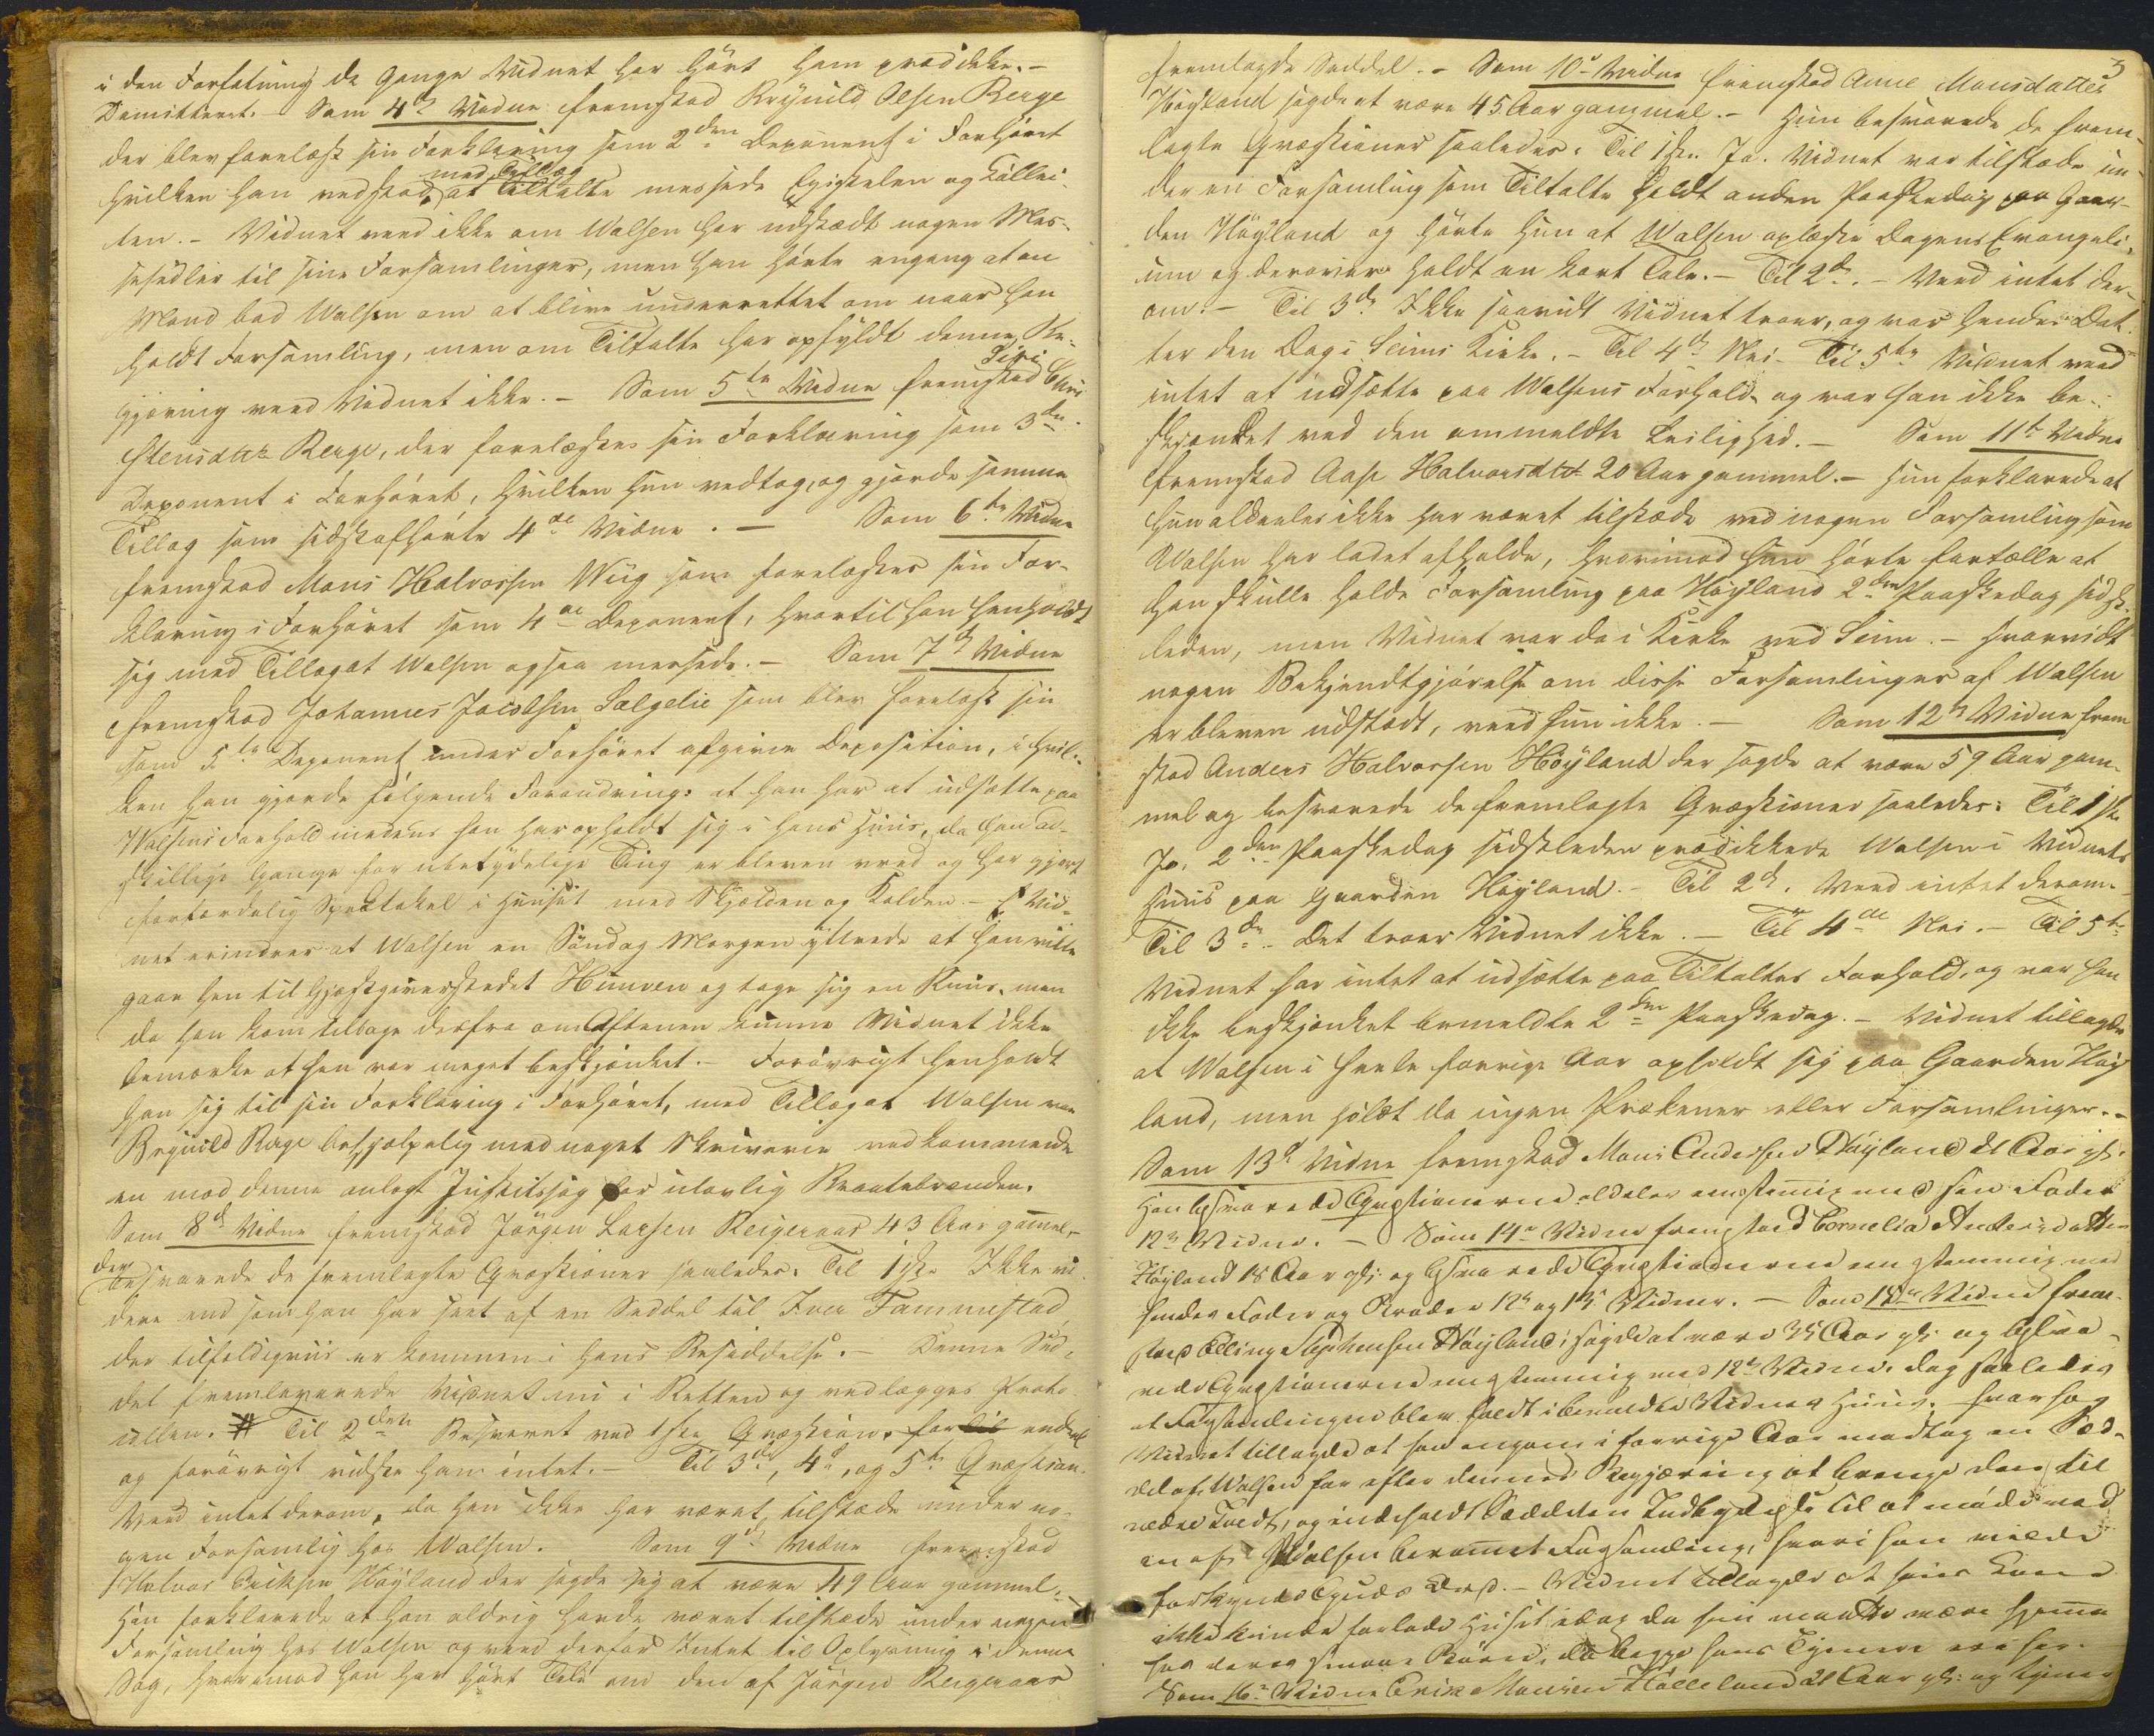 i den Forfatning de Gange Vidnet har hørt ham prædike. –
Demitteret. – Som 4de Vidne fremstod Brynild Olsen Berge
der blev forelæst sin Forklaring som 2den Deponent i Forhøret
med Tillæg
hvilken han vedstod, at Tiltalte messede Epistelen og Collec-
ten. – Vidnet veed ikke om Walsen har udstædt nogen Mes-
sesedler til sine Forsamlinger, men han hørte engang at en
Mand bad Walsen om at blive underrettet om naar han
holdt Forsamling, men om Tiltalte har opfyldt denne Be-
Siri
gjæring veed Vidnet ikke. – Som 5te Vidne fremstod
Steusdtr Berge, der forelæstes sin Forklaring som 3die
Deponent i Forhøret, hvilken hun vedtog, og gjorde samme
Tillæg som sidstafhørte 4de Vidne. – Som 6te Vidne
fremstod Mons Halvorsen Wiig som forelæstes sin For-
klaring i Forhøret som 4de Deponent, hvortil han henholdt
sig med Tillæg at Walsen ogsaa messede. – Som 7de Vidne
fremstod Johannes Jacobsen Sælgelie som blev forelæst sin
som 5te Deponent under Forhøret afgivne Deposition, i hvil-
ken han gjorde følgende Forandring: at han har at udsætte paa
Walsens Forhold medens han har opholdt sig i hans Huus, da han ad-
skillige Gange for ubetydelige Ting er bleven vred og har gjort
forfærdelig Spektakel i Huuset med Skjælden og Kalden. – Vid-
net erindrer at Walsen en Søndag Morgen yttrede at han vilde
gaae hen til Gjæstgiverstedet Hunven og tage sig en Ruus, men
da han kom tilbage derfra om Aftenen kunne Vidnet ikke
bemærke at han var meget beskjænket. – Forøvrigt henholdt
han sig til sin Forklaring i Forhøret, med Tillæg at Walsen var
Brynild Berge behjælpelig med noget Skriverie vedkommende
en mod denne anlagt Justitssag for ulovlig Brændebrænden.
Som 8de Vidne fremstod Jørgen Larsen Reigeraas 43 Aar gammel,
der
besvarede de fremlagte Qvæstioner saaledes: Til 1ste Ikke vi-
dere end som han har seet af en Seddel til Iver Tammestad
der tilfældigviis er kommen i hans Besiddelse. – Denne Sed-
del fremleverede Vidnet nu i Retten og vedlægges Proto-
collen. Til 2den Besvaret ved 1ste Qvæstion,
og forøvrigt vidste han intet. – Til 3die, 4de, og 5te Qvæstion.
Veed intet derom, da han ikke har været tilstæde under no-
gen Forsamling hos Walsen. Som 9de Vidne fremstod
Halvor Eriksen Høyland der sagde sig at være 49 Aar gammel.
Han forklarede at han aldrig havde været tilstæde under nogen
Forsamling hos Walsen og veed derfor Intet til Oplysning i denne
Sag, hvorimod han har hørt Tale om den af Jørgen Reigeraas
3
fremlagde Seddel. – Som 10de Vidne fremstod Anne Monsdatter
Høyland sagde at være 45 Aar gammel. – Hun besvarede de frem-
lagte Qvæstioner saaledes: Til 1ste Ja. Vidnet var tilstæde un-
der en Forsamling som Tiltalte holdt anden Paaskedag paa Gaar-
den Høyland og hørte hun at Walsen oplæste Dagens Evangeli-
um og derover holdt en kort Tale. – Til 2de. – Veed intet der-
om. – Til 3die Ikke saavidt Vidnet troer, og var hendes Dat-
ter den Dag i Seims Kirke. – Til 4de Nei. Til 5te Vidnet veed
intet at udsætte paa Walsens Forhold, og var han ikke be-
skjænket ved den ommeldte Leilighed. – Som 11te Vidne
fremstod Aase Halvorsdtr 20 Aar gammel. – Hun forklarede at
hun aldeles ikke har været tilstæde ved nogen Forsamling som
Walsen har ladet afholde, hvorimod hun hørte fortælle at
han skulle holde Forsamling paa Høyland 2den Paaskedag sidst-
leden, men Vidnet var da i Kirke ved Seim. – Hvorvidt
nogen Bekjendtgjørelse om disse Forsamlinger af Walsen
er bleven udstædt, veed hun ikke. – Som 12te Vidne frem-
stod Anders Halvorsen Høyland der sagde at være 59 Aar gam-
mel og besvarede de fremlagte Qvæstioner saaledes: Til 1ste
Ja, 2den Paaskedag sidstleden prædikede Walsen i Vidnets
Huus paa Gaarden Høyland. – Til 2de. Veed intet derom. –
Til 3die. Det troer Vidnet ikke. – Til 4de Nei. – Til 5te
Vidnet har intet at udsætte paa Tiltaltes Forhold, og var han
ikke beskjænket bemeldte 2den Paaskedag. – Vidnet tillagde
at Walsen i hele forrige Aar opholdt sig paa Gaarden Høy-
land, men holdt da ingen Prækener eller Forsamlinger. –
Som 13de Vidne fremstod Mons Andersen Høyland 21 Aar gl.
Han besvarede Qvæstionerne aldeles eenstemmig med sin Fader
12te Vidne. – Som 14de Vidne fremstod Cornelia Andersdatter
Høyland 18 Aar gl. og besvarede Qvæstionerne eenstemmig med
hendes Fader og Broder 12te og 13de Vidner. – Som 15de Vidne frem-
stod Elling Høyland, sagde at være 35 Aar gl. og besva-
rede Qvæstionerne eenstemmig med 12te Vidne, dog saaledes
at Forsamlingen blev holdt i bemeldte Vidnes Huus.
Vidnet tillagde at han engang i forrige Aar modtog en Sed-
del af Walsen for efter dennes Begjæring at bringe den til
nedre Tvedt, og indeholdt Seddelen Indbydelse til at møde ved
en af Walsen berammet Forsamling, hvori han vilde
forkynde Guds Ord. – Vidnet tillagde at hans Kone
ikke kunde forlade Huset idag da hun maatte være hjemme
hos deres smaae Børn, da begge hans Tjenere ere her.
Som 16de Vidne Erik Monsen Hølleland 21 Aar gl. og tjener